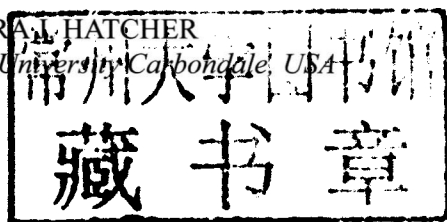 RA L HATCHER
University Carbondale, USA
常州大学图书馆
藏书章